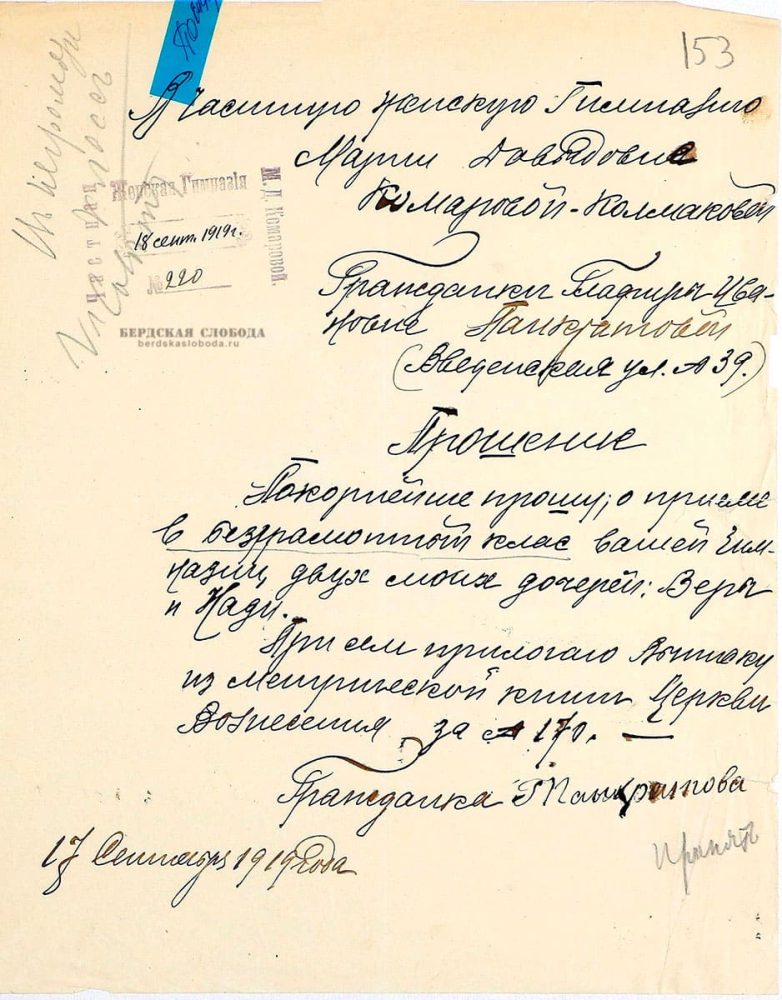 153
В Частную женскую Гимназию
Марии Давыдовне
Комаровой-Колмаковой
Частная
Женская Гимназія
М. Д. Комаровой.
18 сент. 1919 г.
№ 220
БЕРДСКАЯ СЛОБОДА
berdskasloboda.ru
Гражданки Глафиры Ива-
новне Панкратовой
(Введенская ул. № 39.)
Прошение
Покорнейше прошу, о приеме
в безграмотный клас вашей Гим-
назии, двух моих дочерей: Веры
и Нади.
При сем прилогаю Выписку
из метрической книги Церкви
Вознесения за № 170. —
Гражданка Г Панкратова
17 Сентября 1919 Года
Принять